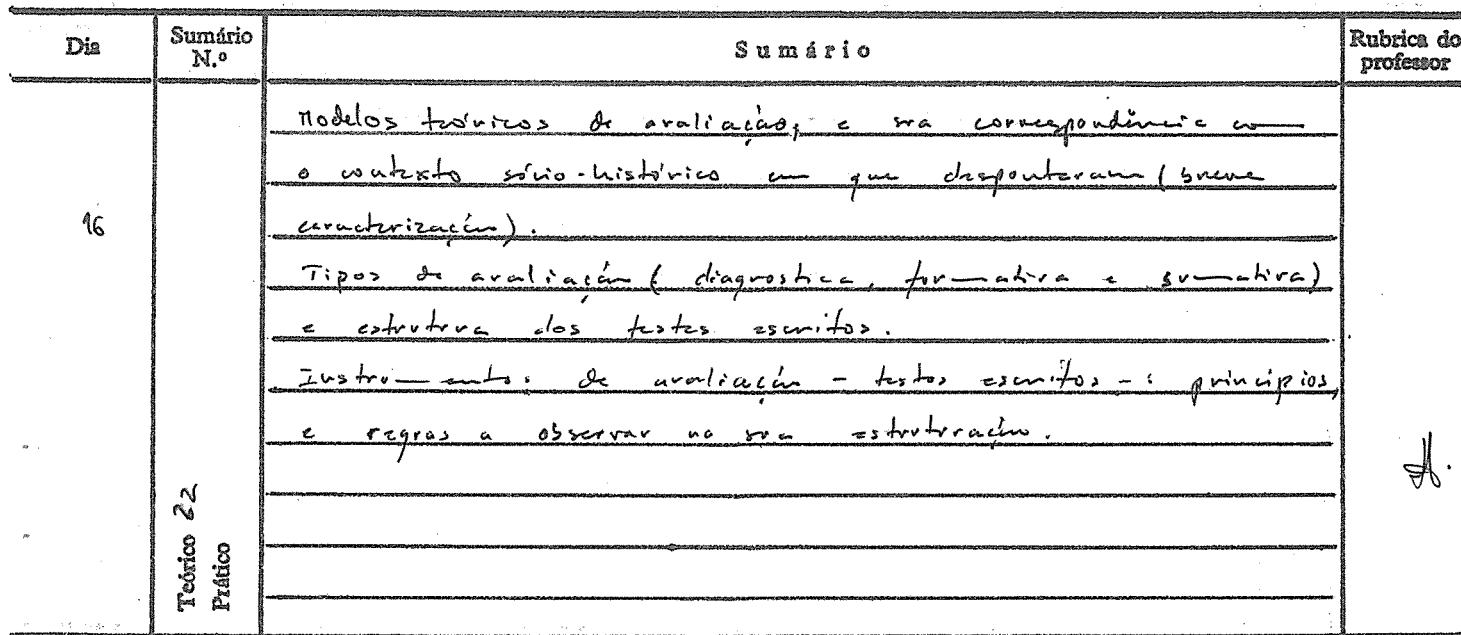 Dia
Sumário N.º
Sumário
Rubrica do professor
Modelos teóricos de avaliação, e sua correspondência com
o contexto sócio-histórico em que despontaram (breve
16
caracterização).
Tipos de avaliação (diagnostica, formativa e sumativa)
e estrutura dos testes escritos.
Instrumentos de avaliação - testes escritos - : princípios,
e regras a observar na sua estruturação.
Teórico 22
Prático